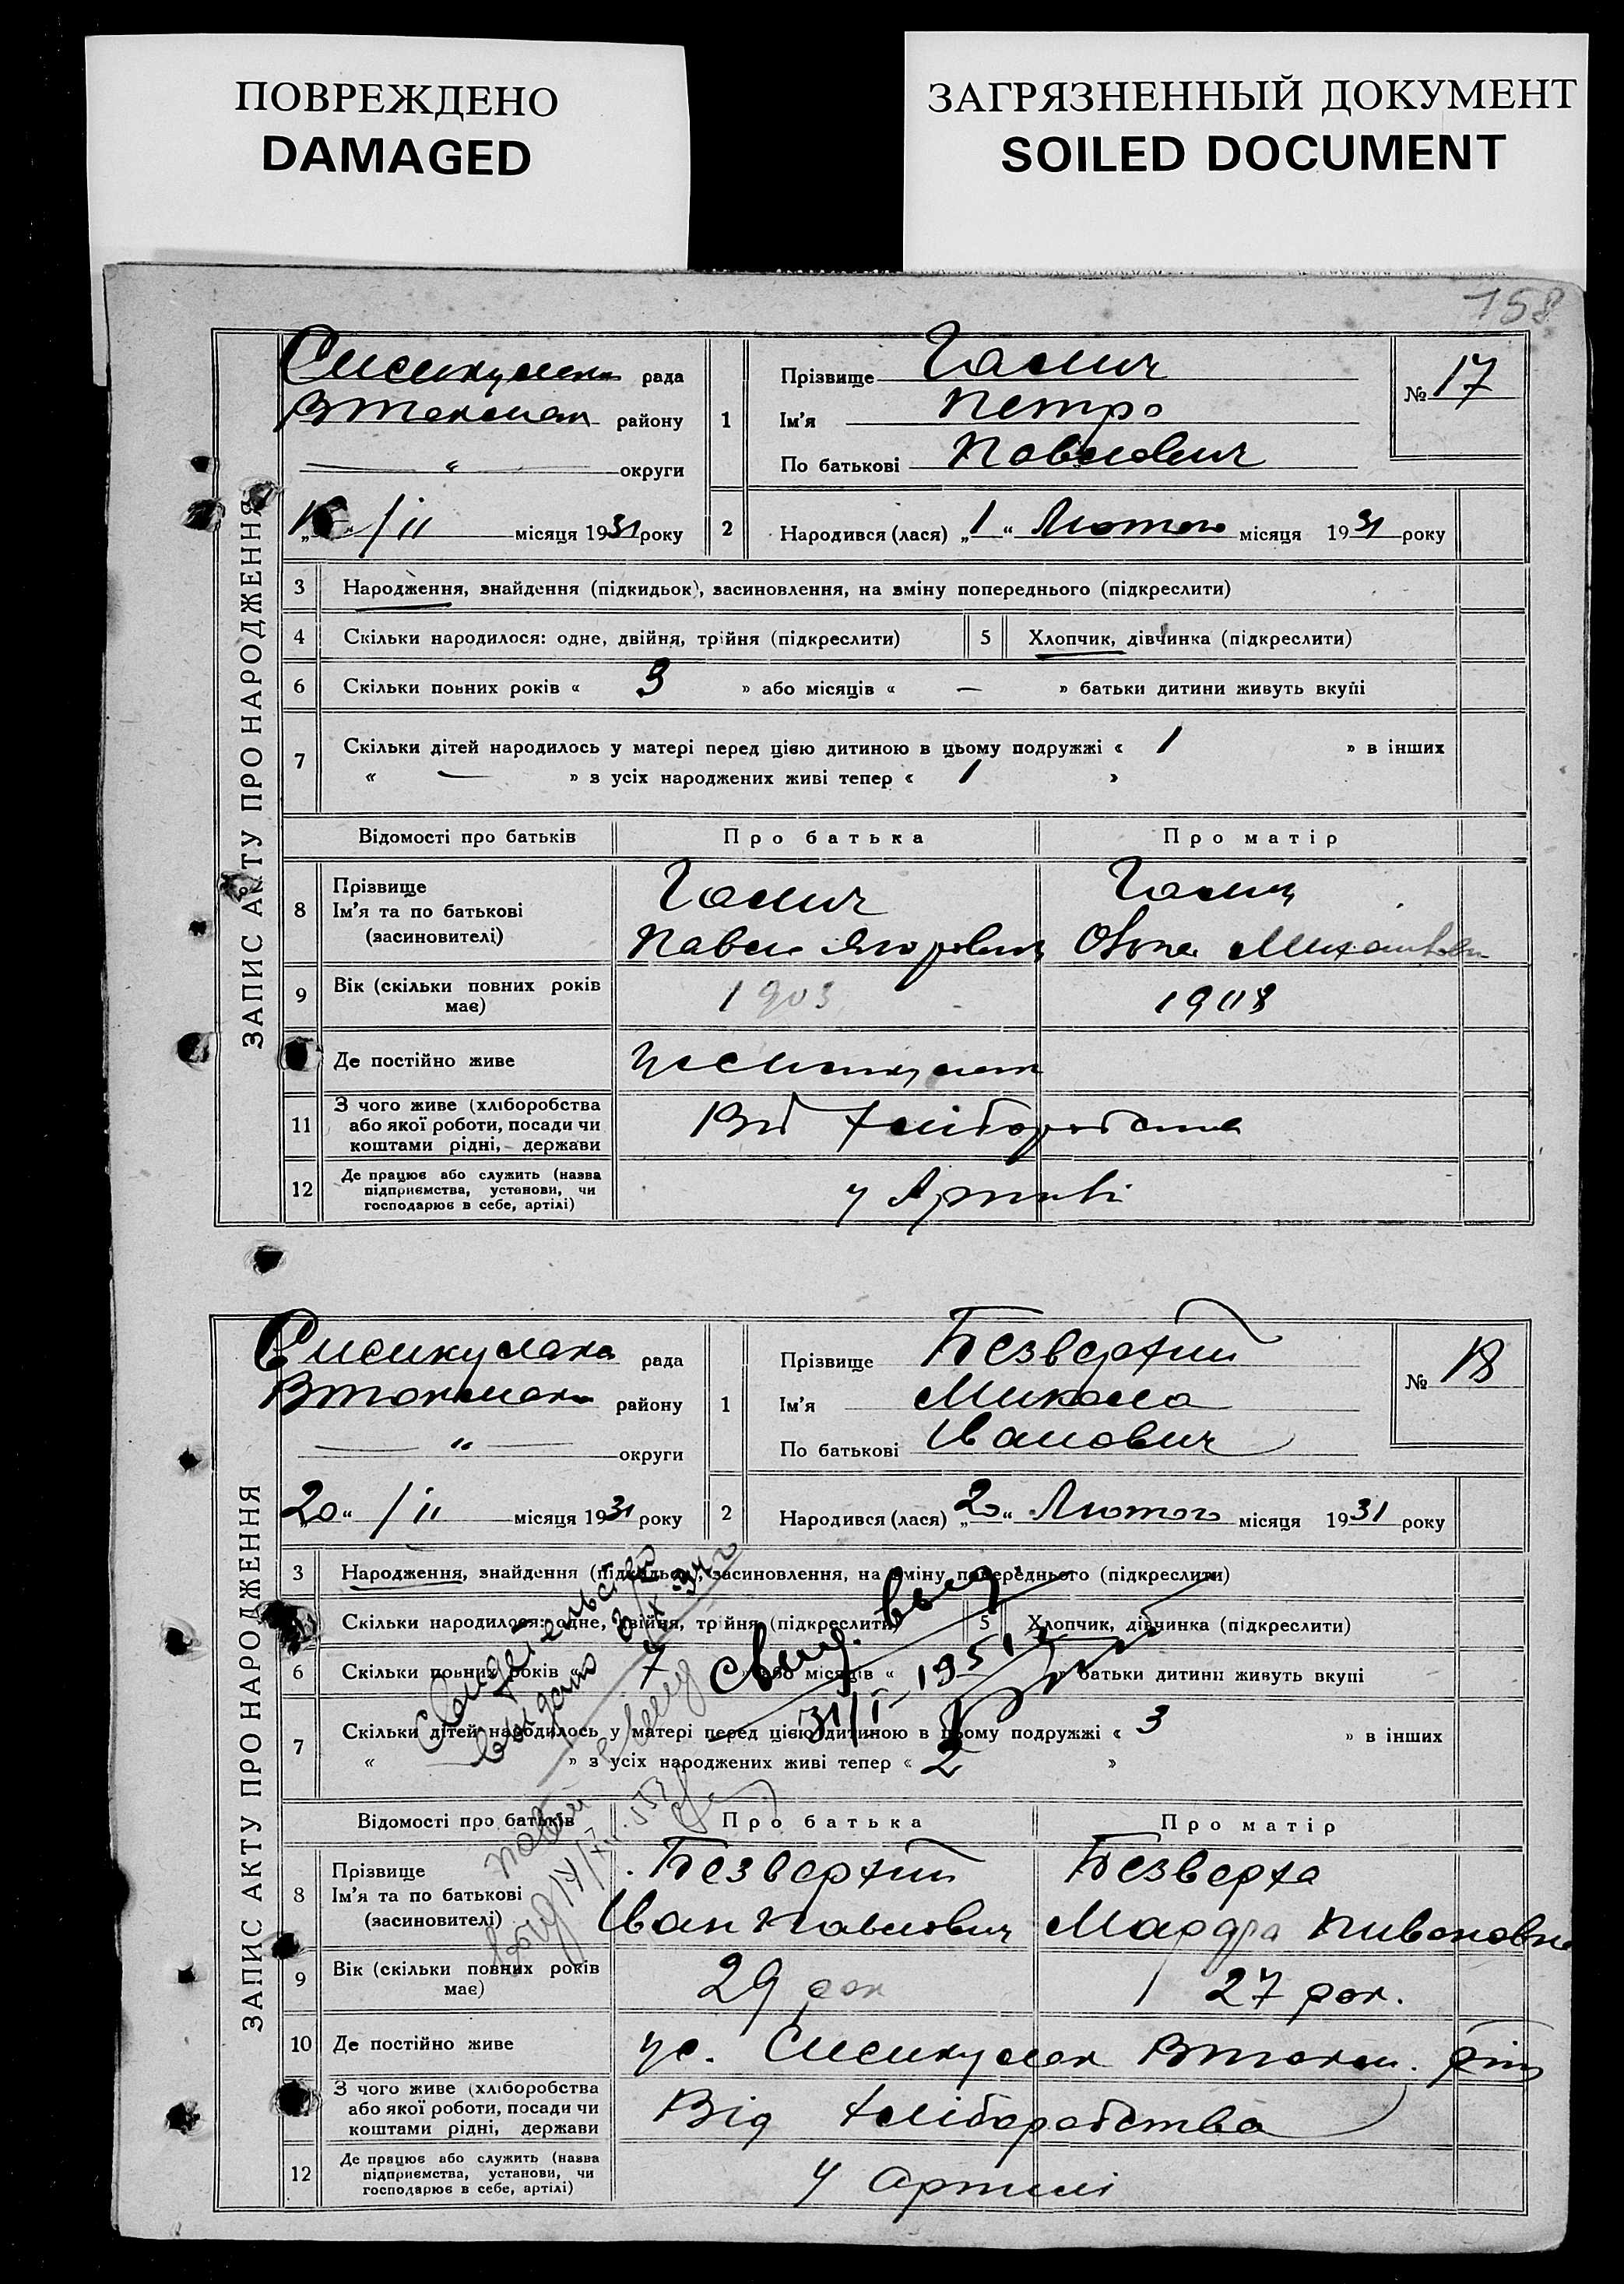 ПОВРЕЖДЕНО
DAMAGED
ЗАГРЯЗНЕННЫЙ ДОКУМЕНТ
SOILED DOCUMENT
158
ЗАПИС АКТУ ПРО НАРОДЖЕННЯ
рада
району
— " — округи
/ii місяця 1931 року
1 Прізвище Галич
Ім'я Петро
По батькові Павлович
№ 17
2 Народився (лася) „1“ Лютого місяця 1931 року
3 Народження, знайдення (підкидьок), засиновлення, на зміну попереднього (підкреслити)
4 Скільки народилося: одне, двійня, трійня (підкреслити) 5 Хлопчик, дівчинка (підкреслити)
6 Скільки повних років « 3 » або місяців « — » батьки дитини живуть вкупі
7 Скільки дітей народилось у матері перед цією дитиною в цьому подружжі « 1 » в інших
« — » з усіх народжених живі тепер « 1 »
Відомості про батьків Про батька Про матір
8 Прізвище Галич Галич
Ім'я та по батькові
(засновителі) Павло Ягорович
9 Вік (скільки повних років має) 1903 1908
Де постійно живе
11 З чого живе (хліборобства або якої роботи, посади чи коштами рідні, держави Від хліборобства
12 Де працює або служить (назва підприємства, установи, чи господарює в себе, артілі) у Артілі
ЗАПИС АКТУ ПРО НАРОДЖЕННЯ
рада
Втокмака району
— " — округи
„20“ /ii місяця 1931 року
1 Прізвище Безверхий
Ім'я Микола
По батькові Іванович
№ 18
2 Народився (лася) „20“ Лютого місяця 1931 року
3 Народження, знайдення (підкидьок), засиновлення, на зміну попереднього (підкреслити)
Скільки народилося: одне, двійня, трійня (підкреслити) 5 Хлопчик, дівчинка (підкреслити)
6 Скільки повних років « 7 » або місяців « » батьки дитини живуть вкупі
7 Скільки дітей народилось у матері перед цією дитиною в цьому подружжі « 3 » в інших
« » з усіх народжених живі тепер « 2 »
Відомості про батьків Про батька Про матір
8 Прізвище Безверхий Безверха
Ім'я та по батькові
(засиновителі) Іван Павлович
9 Вік (скільки повних років має) 29 рок 27 рок.
10 Де постійно живе ус.
З чого живе (хліборобства або якої роботи, посади чи коштами рідні, держави Від хліборобства
12 Де працює або служить (назва підприємства, установи, чи господарює в себе, артілі) У артилі